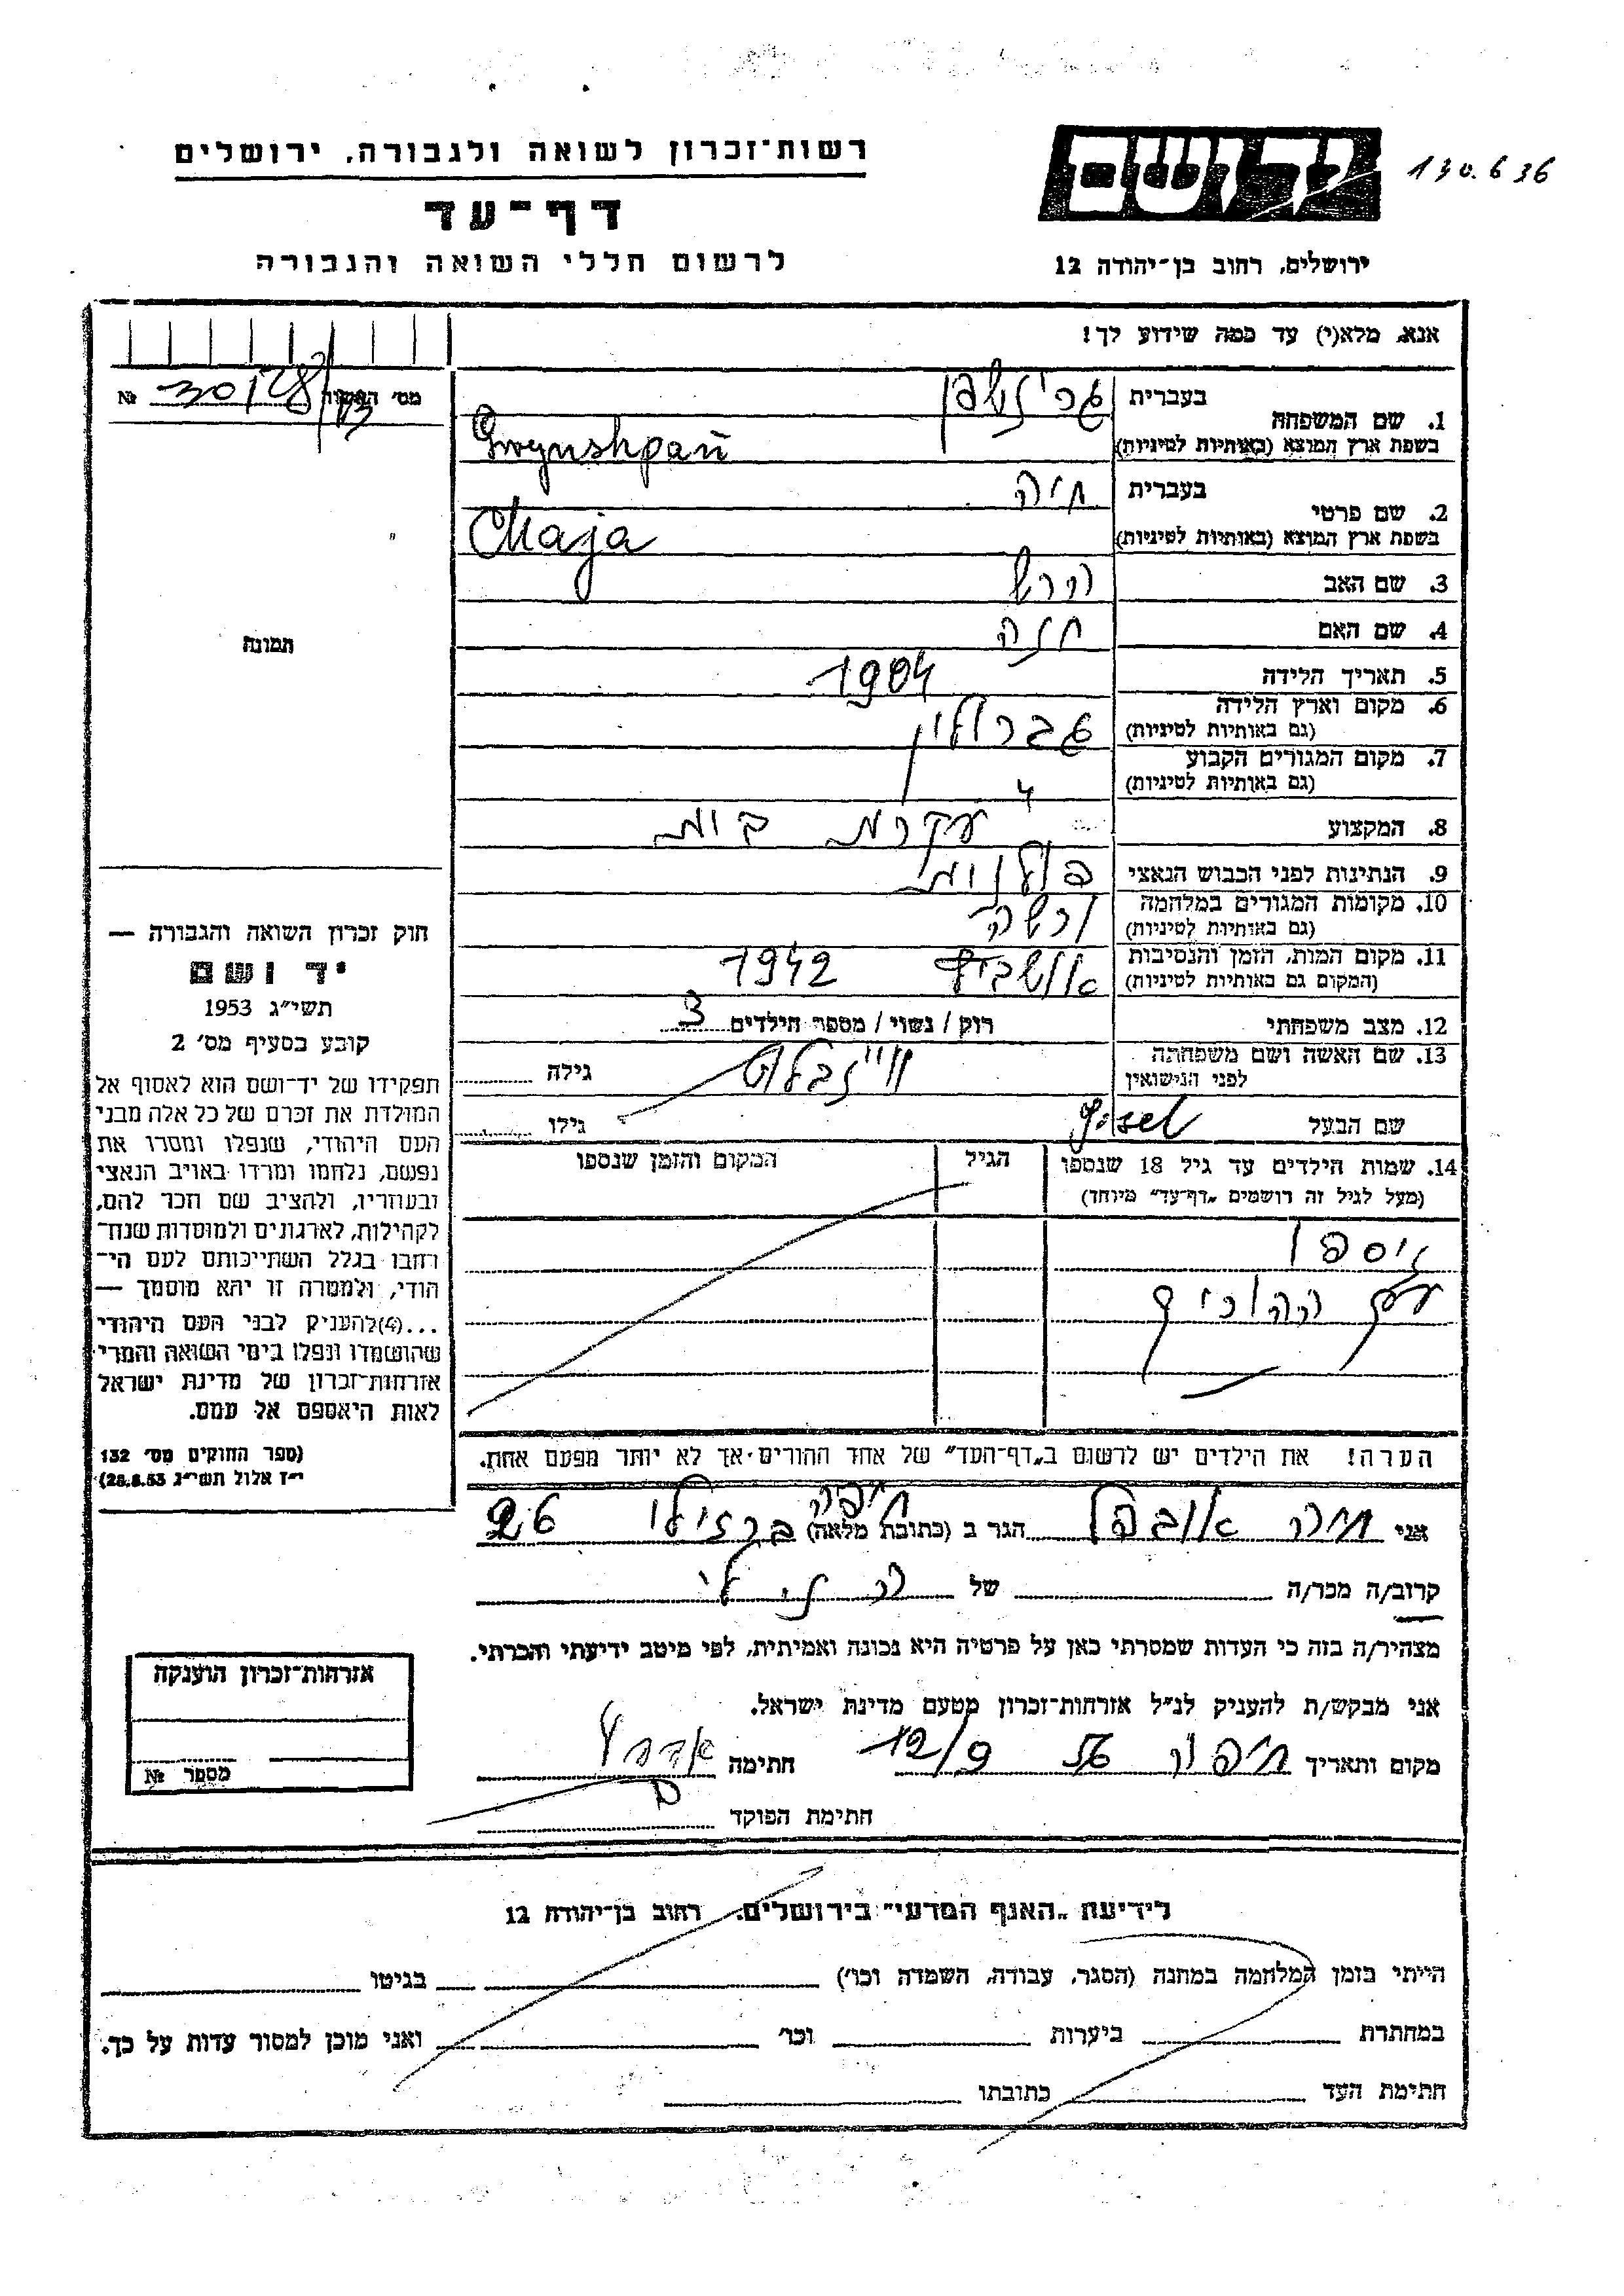 רשות־זכרון לשואה ולגבורה, ירושלים
דף־עד
לרשום חללי השואה והגבורה
ידושם
130.6 36
ירושלים, רחוב בן־יהודה 12
אנא, מלא(י) עד כמה שידוע לך!
מס׳ האשור № 30128/13
1. שם המשפחה בעברית גרינשפן
בשפת ארץ המוצא (באותיות לטיניות) Greynshpan
2. שם פרטי בעברית חיה
בשפת ארץ המוצא (באותיות לטיניות) Chaja
3. שם האב הרש
4. שם האם חנה
5. תאריך הלידה 1904
6. מקום וארץ הלידה
(גם באותיות לטיניות) גברולין
7. מקום המגורים הקבוע
(גם באותיות לטיניות) 4
8. המקצוע עקרת בית
9. הנתינות לפני הכבוש הנאצי פולנית
10. מקומות המגורים במלחמה
(גם באותיות לטיניות) ורשה
11. מקום המות, הזמן והנסיבות
(המקום גם באותיות לטיניות) אושביץ 1942
12. מצב משפחתי רוק / נשוי / מספר הילדים 3
13. שם האשה ושם משפחתה
לפני הנישואין ויינבלט גילה
שם הבעל Josel גילו
14. שמות הילדים עד גיל 18 שנספו
(מעל לגיל זה רושמים „דף־עד״ מיוחד)
הגיל
המקום והזמן שנספו
ניספו
עם ההורים
הערה! את הילדים יש לרשום ב„דף־העד״ של אחד ההורים־אך לא יותר מפעם אחת.
תמונה
חוק זכרון השואה והגבורה —
יד ושם
תשי״ג 1953
קובע בסעיף מס׳ 2
תפקידו של יד־ושם הוא לאסוף אל
המולדת את זכרם של כל אלה מבני
העם היהודי, שנפלו ומסרו את
נפשם, נלחמו ומרדו באויב הנאצי
ובעוזריו, ולהציב שם וזכר להם,
לקהילות, לארגונים ולמוסדות שנח־
רבו בגלל השתייכותם לעם הי־
הודי, ולמטרה זו יהא מוסמך —
...(4)להעניק לבני העם היהודי
שהושמדו ונפלו בימי השואה והמרי
אזרחות־זכרון של מדינת ישראל
לאות היאספם אל עמם.
(ספר החוקים מס׳ 132
י״ז אלול תשי״ג 28.8.53)
אני חיה הגר ב (כתובת מלאה) חיפה ברזילי 26
קרוב/ה מכר/ה של
מצהיר/ה בזה כי העדות שמסרתי כאן על פרטיה היא נכונה ואמיתית, לפי מיטב ידיעתי והכרתי.
אני מבקש/ת להעניק לנ״ל אזרחות־זכרון מטעם מדינת ישראל.
מקום ותאריך חיפה 12/9 56 חתימה
חתימת הפוקד
אזרחות־זכרון הוענקה
מספר №
לידיעת „האגף המדעי״ בירושלים, רחוב בן־יהודה 12
הייתי בזמן המלחמה במחנה (הסגר, עבודה, השמדה וכו׳) בגיטו
במחתרת ביערות וכו׳ ואני מוכן למסור עדות על כך.
חתימת העד כתובתו